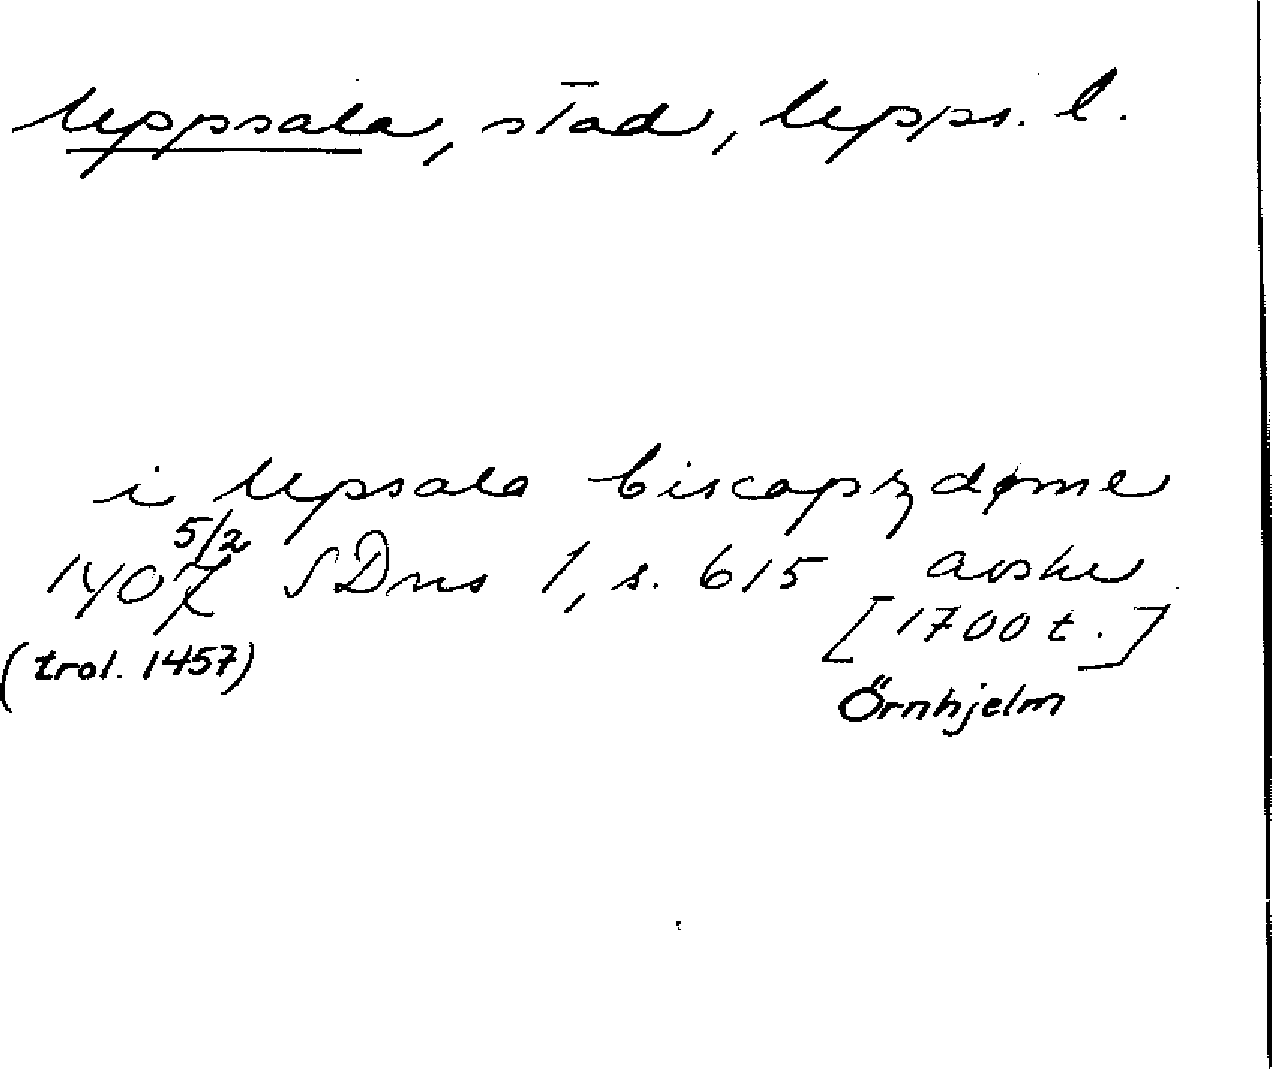 Uppsala, stad, Upps. l.
i Upsala biscopzdøme
5/2
1407 SDns 1, s. 615 avskr
[1700 t.]
(trol. 1457)
Örnhjelm